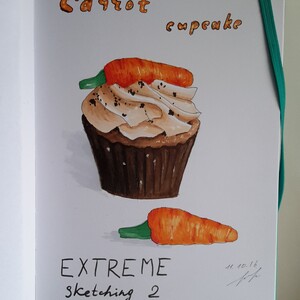 Carrot
cupcake
EXTREME
sketching 2